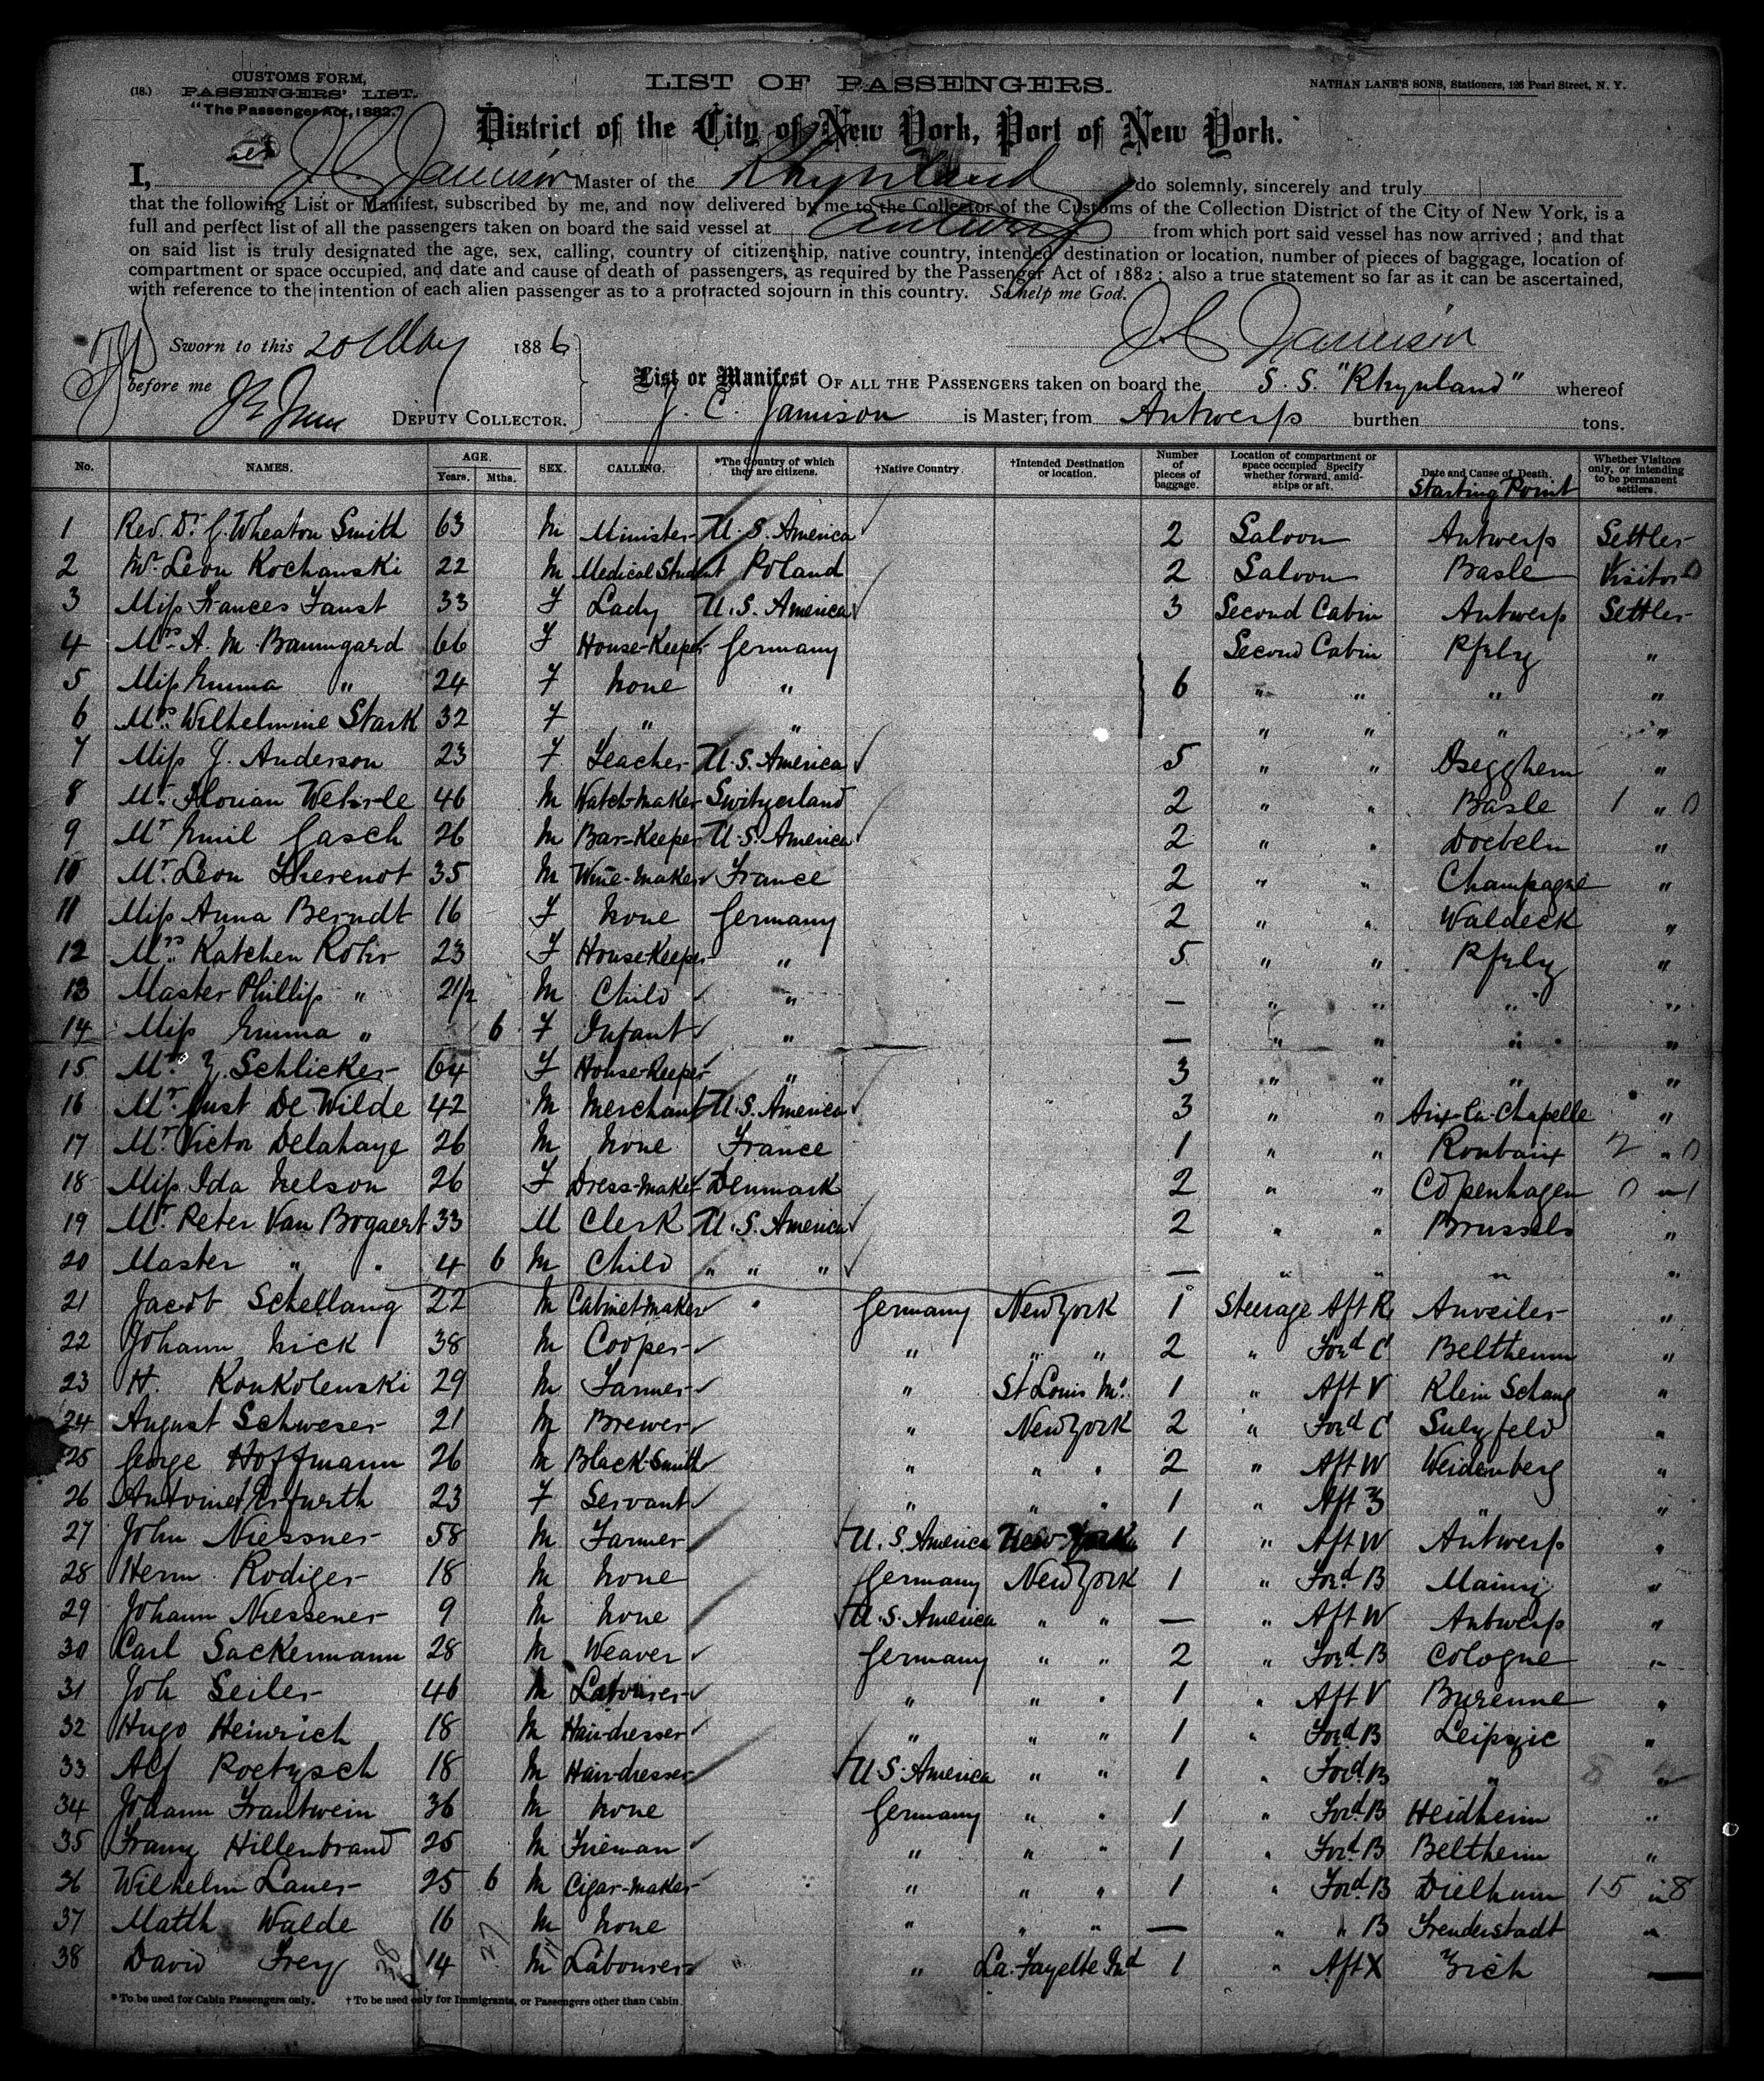 (18.)
CUSTOMS FORM,
PASSENGERS' LIST.
"The Passenger Act, 1882."
LIST OF PASSENGERS.
NATHAN LANE'S SONS, Stationers, 126 Pearl Street, N. Y.
District of the City of New York, Port of New York.
I, J C Jamison Master of the Rhynland do solemnly, sincerely and truly
that the following List or Manifest, subscribed by me, and now delivered by me to the Collector of the Customs of the Collection District of the City of New York, is a
full and perfect list of all the passengers taken on board the said vessel at Antwerp from which port said vessel has now arrived; and that
on said list is truly designated the age, sex, calling, country of citizenship, native country, intended destination or location, number of pieces of baggage, location of
compartment or space occupied, and date and cause of death of passengers, as required by the Passenger Act of 1882; also a true statement so far as it can be ascertained,
with reference to the intention of each alien passenger as to a protracted sojourn in this country. So help me God.
J C Jamison
Sworn to this 20 May 1886
before me DEPUTY COLLECTOR.
List or Manifest OF ALL THE PASSENGERS taken on board the S. S. "Rhynland" whereof
J. C. Jamison is Master, from Antwerp burthen tons.
No. NAMES. AGE. Years. Mths. SEX. CALLING. *The Country of which they are citizens. †Native Country. †Intended Destination or location. Number of pieces of baggage. Location of compartment or space occupied Specify whether forward, amidships or aft. Date and Cause of Death. Starting Point Whether Visitors only, or intending to be permanent settlers.
1 Rev. Dr. J. Wheaton Smith 63 M Minister U. S. America 2 Saloon Antwerp Settler
2 Mr. Leon Kochanski 22 M Medical Student Poland 2 Saloon Basle Visitor
3 Miss Frances Faust 33 F Lady U. S. America 3 Second Cabin Antwerp Settler
4 Mrs. A. M. Baumgard 66 F House-Keeper Germany Second Cabin Pfalz "
5 Miss Emma " 24 F None " 6 " " " "
6 Mrs. Wilhelmine Stark 32 F " " " " " "
7 Miss J. Anderson 23 F Teacher U. S. America 5 " " Iseghem "
8 Mr. Florian Wehrle 46 M Watch-Maker Switzerland 2 " " Basle 1 " 0
9 Mr Emil Gasch 26 M Bar-Keeper U. S. America 2 " " Doebeln "
10 Mr. Leon Therenot 35 M Wine-Maker France 2 " " Champagne "
11 Miss Anna Berndt 16 F None Germany 2 " " Waldeck "
12 Mrs. Katchen Rohr 23 F House-Keeper " 5 " " Pfalz "
13 Master Phillip " 2 1/2 M Child " — " " " "
14 Miss Emma " 6 F Infant " — " " " "
15 Mrs. Schlicker 64 F House-Keeper " 3 " " " "
16 Mr. Gust De Wilde 42 M Merchant U. S. America 3 " " Aix-la-Chapelle "
17 Mr Victor Delahaye 26 M None France 1 " " Roubaix 2 " 0
18 Miss Ida Nelson 26 F Dress-Maker Denmark 2 " " Copenhagen 0 " 1
19 Mr. Peter Van Bogaert 33 M Clerk U. S. America 2 " " Brussels "
20 Master " " 4 6 M Child " " " — " " " "
21 Jacob Schellang 22 M Cabinet-maker " Germany New York 1 Steerage Aft R Anveiler "
22 Johann Nick 38 M Cooper " " " 2 " Ford C Beltheim "
23 H. Konkolenski 29 M Farmer " St Louis Mo. 1 " Aft V Klein Schang "
24 August Schweser 21 M Brewer " New York 2 " Ford C Sulzfeld "
25 George Hoffmann 26 M Black-Smith " " " 2 " Aft W Weidenberg "
26 Antoinet Erfurth 23 F Servant " " " 1 " Aft Z " "
27 John Niessner 58 M Farmer U. S. America New York 1 " Aft W Antwerp "
28 Herm. Rodiger 18 M None Germany New York 1 " Ford. B Mainz "
29 Johann Niessener 9 M None U. S. America " " — " Aft W Antwerp "
30 Carl Sackermann 28 M Weaver Germany " " 2 " Ford. B Cologne "
31 Joh Seiler 46 M Labourer " " " 1 " Aft V Burenne "
32 Hugo Heinrich 18 M Hair-dresser " " " 1 " Ford B Leipzic "
33 Alf Poetzsch 18 M Hair-dresser U. S. America " " 1 " Ford. B " 8 "
34 Johann Trautwein 36 M None Germany " " 1 " Ford. B Heidheim "
35 Franz Hillenbrand 25 M Fireman " " " 1 " Ford. B Beltheim "
36 Wilhelm Lauer 25 6 M Cigar-Maker " " " 1 " Ford. B Dielheim 15 " 8
37 Matth Walde 16 M None " " " — " " B Freuderstadt "
38 David Frey 14 M Labourer " La. Fayette Ind 1 " Aft X Zrich —
38 27
* To be used for Cabin Passengers only. † To be used only for Immigrants, or Passengers other than Cabin.